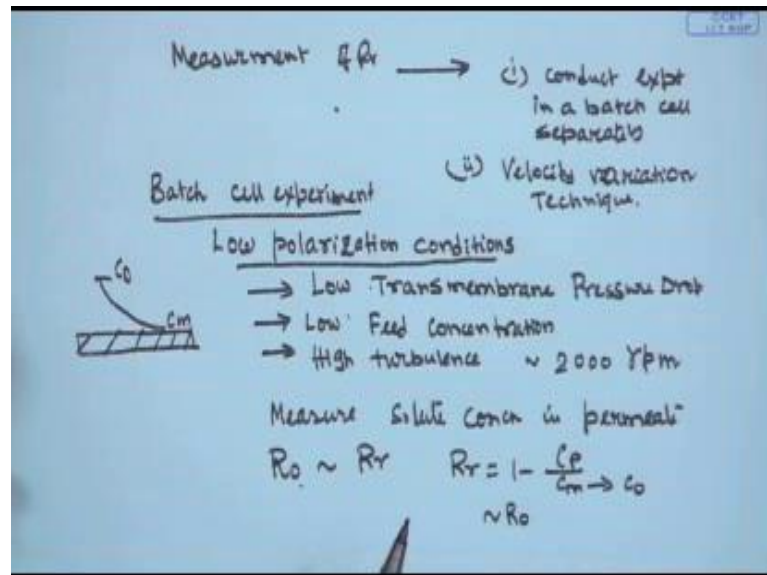 CCET
I.I.T. KGP
Measurment of Rr → i) conduct expt
in a batch cell
separately
ii) Velocity variation
Technique.
Batch cell experiment
Low polarization conditions
→ Low Transmembrane Pressure Drop
→ Low Feed concentration
→ High turbulence ~ 2000 rpm
C0
Cm
Measure Solute concn in permeate
R0 ~ Rr Rr = 1 - Cp/Cm → C0
~ R0